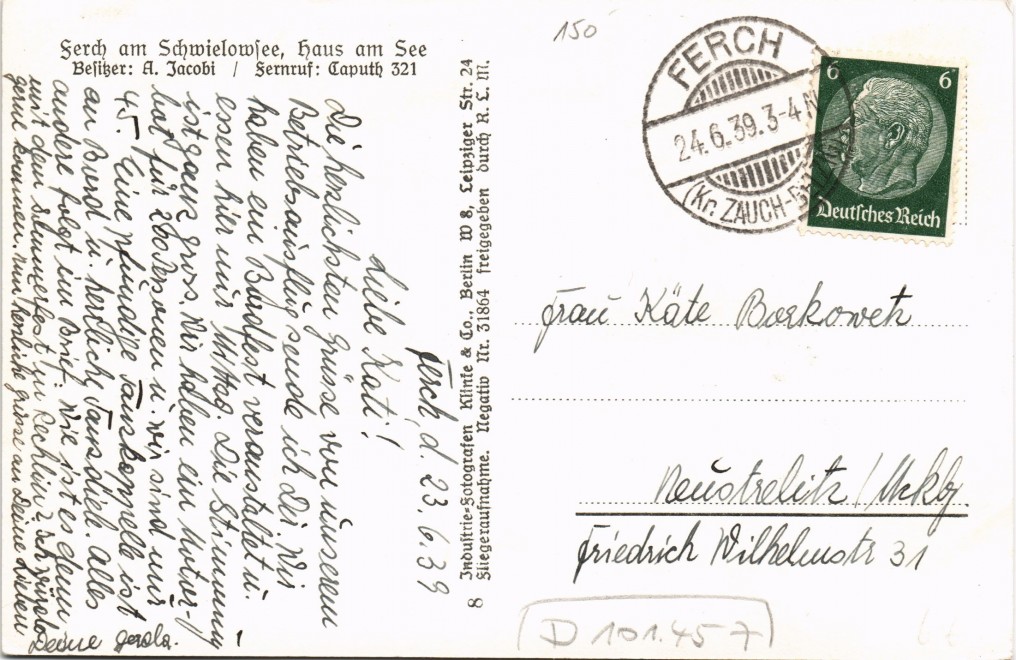 Ferch am Schwielowsee, Haus am See
Besitzer: A. Jacobi / Fernruf: Caputh 321
Ferch, d. 23.6.39
Liebe Kati!
Die herzlichsten Grüsse von unserem
Betriebsausflug sende ich Dir. Wir
haben ein Bordfest veranstaltet u.
essen hier nur Mittag. Die Stimmung
ist ganz gross. Wir haben ein Motor-
boot für 200 Personen u. wir sind nur
45. Eine pfundige Tanzkapelle ist
an Bord u. herrliche Tanzdiele. Alles
andere folgt im Brief. Wie ist es denn
mit dem Sommerfest in Rechlin? Ich würde
gerne kommen. Nun herzliche Grüsse an Deine Lieben
Deine Gerda.
8
Industrie-Fotografen Klinke & Co., Berlin W 8, Leipziger Str. 24
Fliegeraufnahme. Negativ Nr. 31864 freigegeben durch R. L. M.
150
FERCH
24.6.39.3-4 N
(Kr. ZAUCH-
6 6
Deutsches Reich
Frau Käte Borkowetz
Neustrelitz / Meckbg.
Friedrich Wilhelmstr 31
D 101.45 7